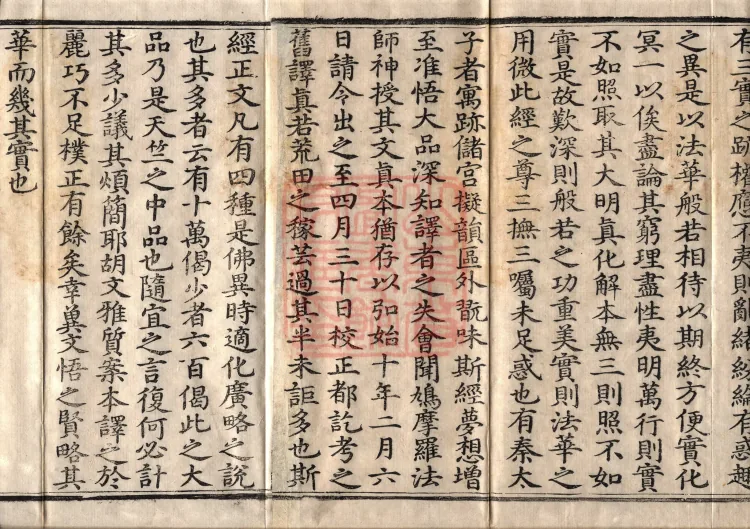 有三實之跡權應不夷則亂緒紛綸有惑趣
之異是以法華般若相待以期終方便實化
冥一以俟盡論其窮理盡性夷明萬行則實
不如照取其大明眞化解本無三則照不如
實是故歎深則般若之功重美實則法華之
用微此經之尊三撫三囑未足惑也有秦太
子者寓跡儲宮擬韻區外翫味斯經夢想增
至准悟大品深知譯者之失會聞鳩摩羅法
師神授其文眞本猶存以弘始十年二月六
日請令出之至四月三十日校正都訖考之
舊譯眞若荒田之稼芸過其半未詎多也斯
經正文凡有四種是佛異時適化廣略之說
也其多者云有十萬偈少者六百偈此之大
品乃是天竺之中品也隨宜之言復何必計
其多少議其煩簡耶胡文雅質案本譯之於
麗巧不足樸正有餘矣幸冀文悟之賢略其
華而幾其實也